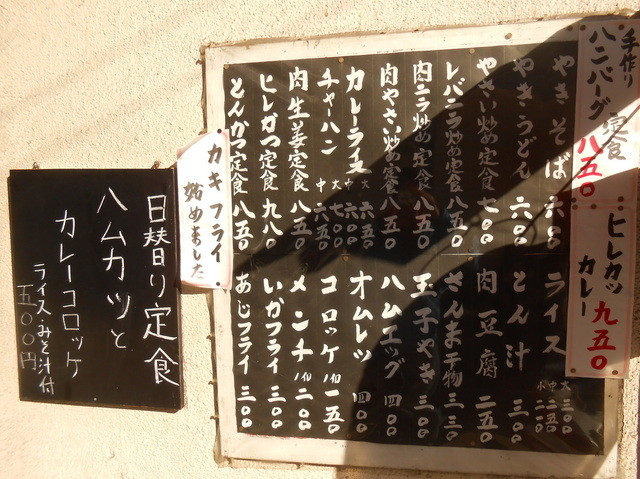 手作り
ハンバーグ定食
八五〇
ヒレカツ
カレー
九五〇
やきそば 六〇〇
やきうどん 六〇〇
やさい炒め定食 七〇〇
レバニラ炒め定食 八五〇
肉ニラ炒め定食 八五〇
肉やさい炒め定食 八五〇
カレーライス 大 六五〇
中
チャーハン 大 七〇〇
中 六五〇
肉生姜定食 八五〇
ヒレかつ定食 九八〇
とんかつ定食 八五〇
ライス 大 三〇〇
中 二五〇
小 二二〇
とん汁 三一〇
肉豆腐 二五〇
さんま干物 三五〇
玉子やき 三〇〇
ハムエッグ 四〇〇
オムレツ 四〇〇
コロッケ 1ヶ 一五〇
メンチ 1ヶ 二〇〇
いかフライ 三〇〇
あじフライ 三〇〇
カキフライ
始めました
日替り定食
ハムカツと
カレーコロッケ
ライスみそ汁付
五〇〇円